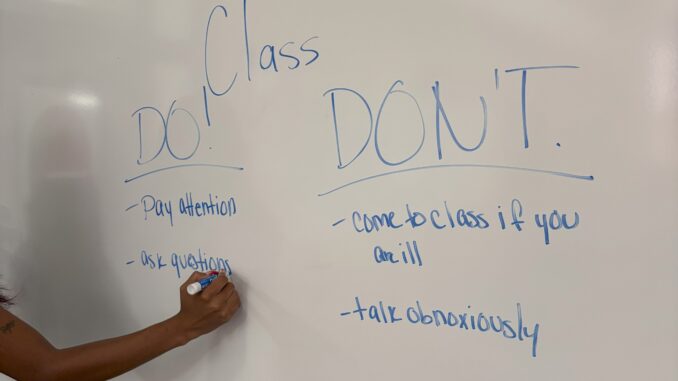 Class
DO!
- Pay attention
- ask questions
DON'T.
- come to class if you
are ill
- talk obnoxiously